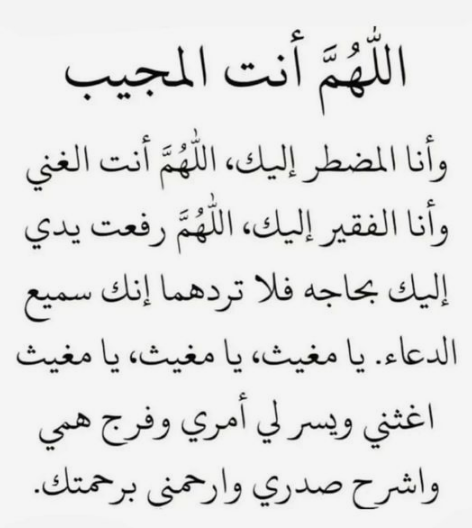 اللّٰهُمَّ أنت المجيب
وأنا المضطر إليك، اللّٰهُمَّ أنت الغني
وأنا الفقير إليك، اللّٰهُمَّ رفعت يدي
إليك بحاجه فلا تردهما إنك سميع
الدعاء. يا مغيث، يا مغيث، يا مغيث
اغثني ويسر لي أمري وفرج همي
واشرح صدري وارحمنى برحمتك.